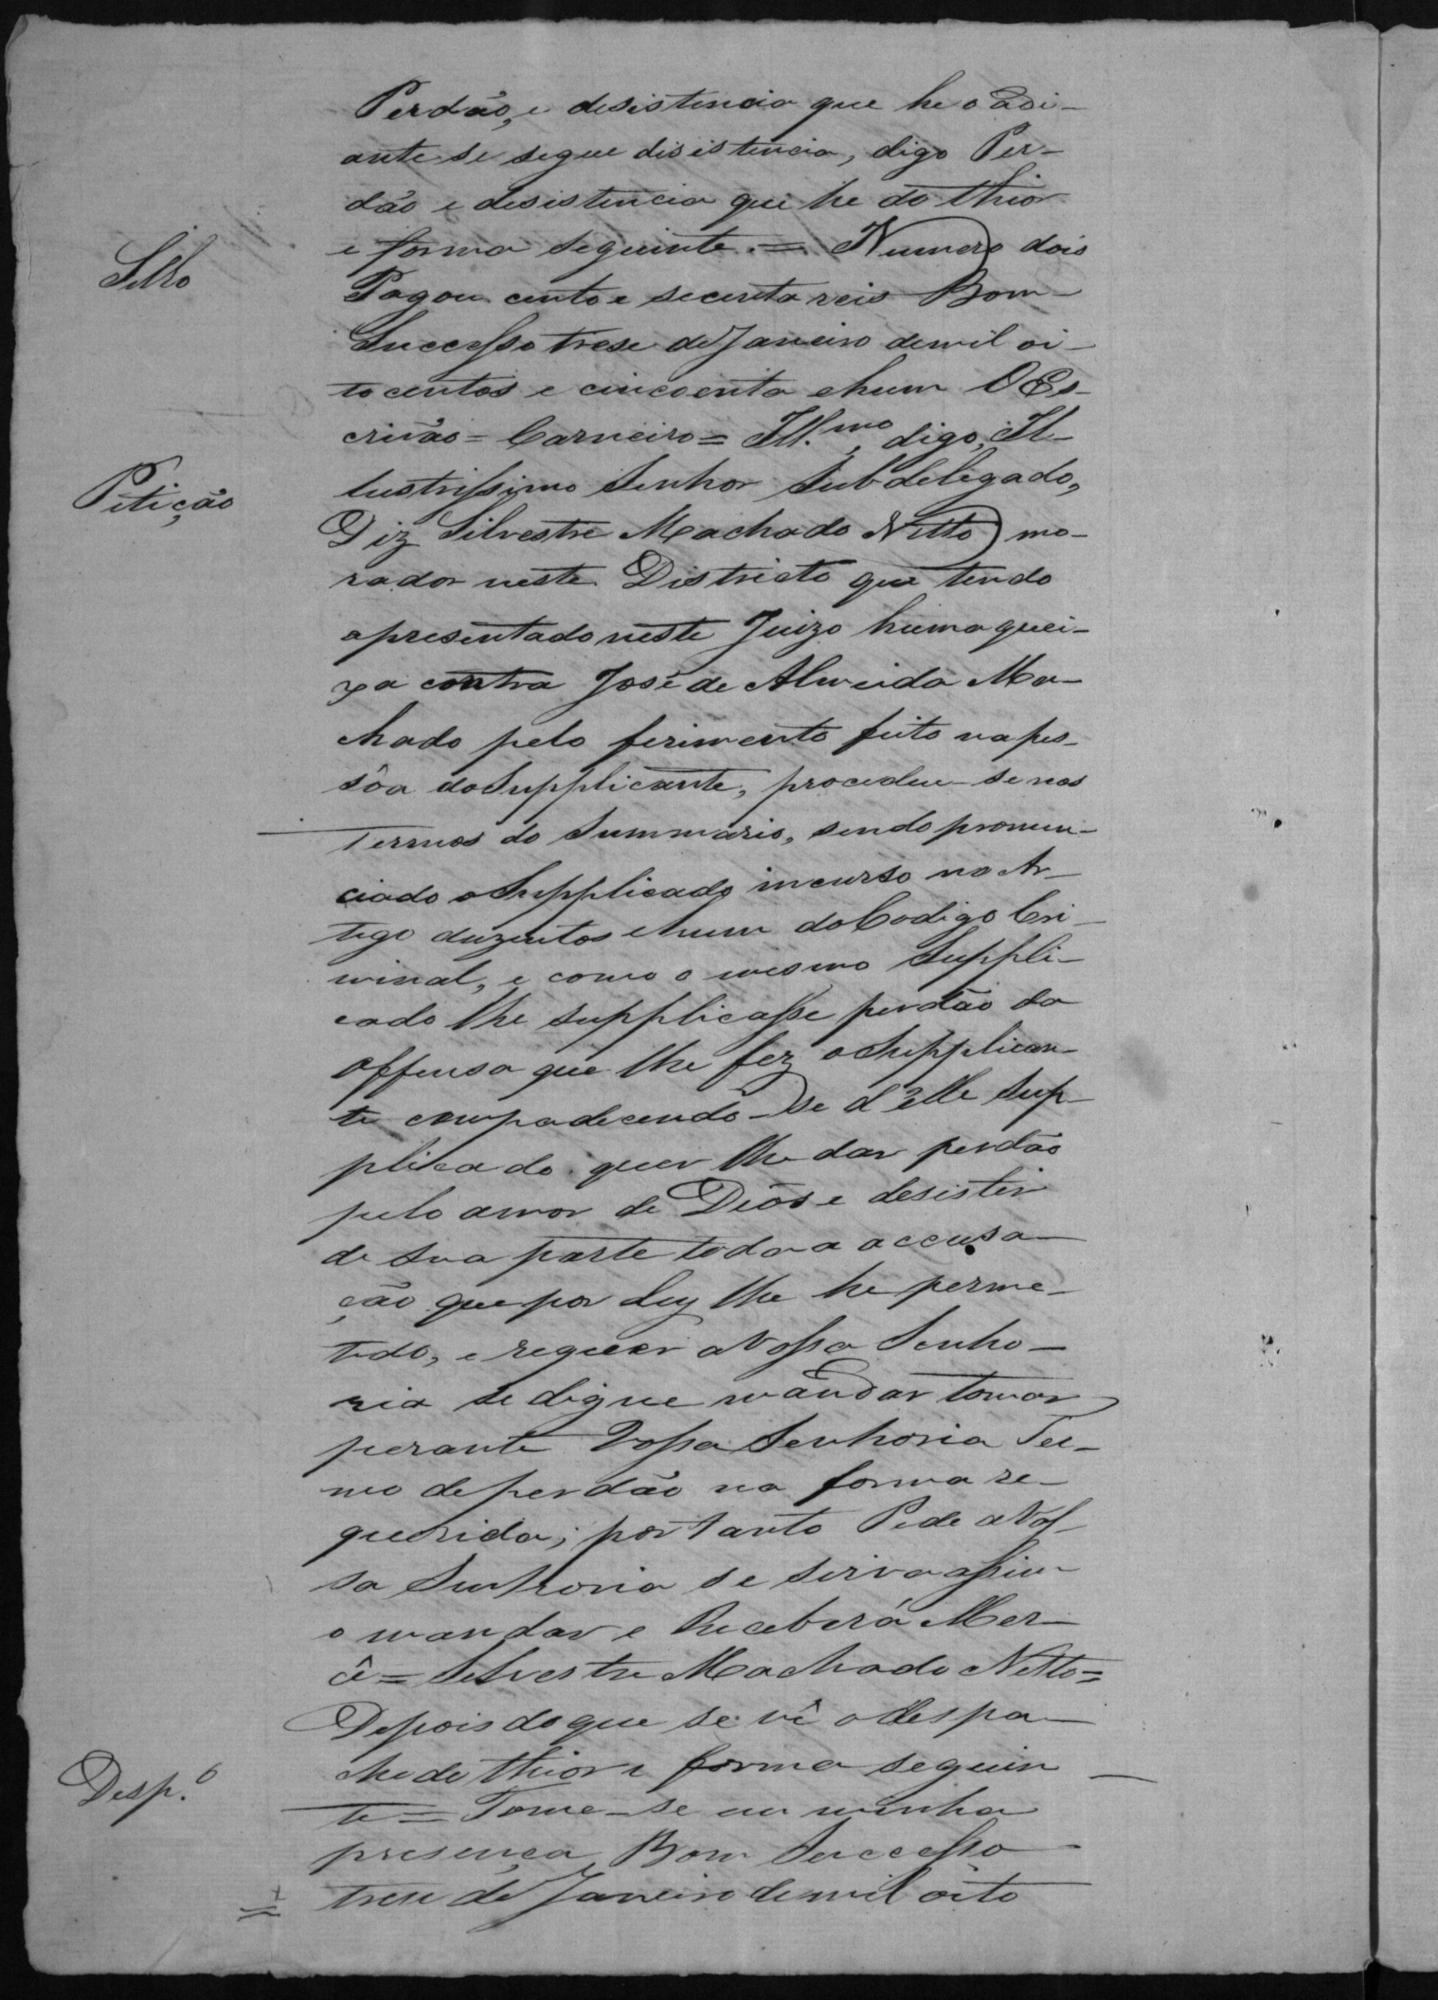 Perdão, e desistencia que he o adi-
ante se segue disistencia, digo Per-
dão e desistencia que he do thior
e forma seguinte. = Numero dois
Sello
Pagou cento e secenta reis Bom-
Successo trese de Janeiro de mil oi-
to centos e cincoenta e hum O Es-
crivão = Carneiro = Ill.mo, digo, Il-
Petição
lustrissimo Senhor Subdelegado,
Diz Silvestre Machado Netto mo-
rador neste Districto que tendo
apresentado neste Juizo huma quei-
xa contra José de Almeida Ma-
chado pelo ferimento feito na pes-
sôa do Supplicante, procedeu-se nos
Termos do Summario, sendo pronun-
ciado o Supplicado incurso no Ar-
tigo duzentos e hum do Codigo Cri-
minal, e como o mesmo Suppli-
cado lhe supplicasse perdão da
offensa que lhe fez o Supplican-
te compadecendo-se d'elle Sup-
plicado quer lhe dar perdão
pelo amor de Deos e desistir
de sua parte toda a accusa-
ção que por Ley lhe he perme-
tido, e requer a Vossa Senho-
ria se digne mandar tomar
perante Vossa Senhoria Ter-
mo de perdão na forma re-
querida; portanto Pede a Vos-
sa Senhoria se sirva assim
o mandar e Receberá Mer-
cê = Silvestre Machado Netto =
Depois do que se vê o despa-
Desp.o
cho do thior e forma seguin
te = Tome-se em minha
presença Bom Successo
trese de Janeiro de mil oito